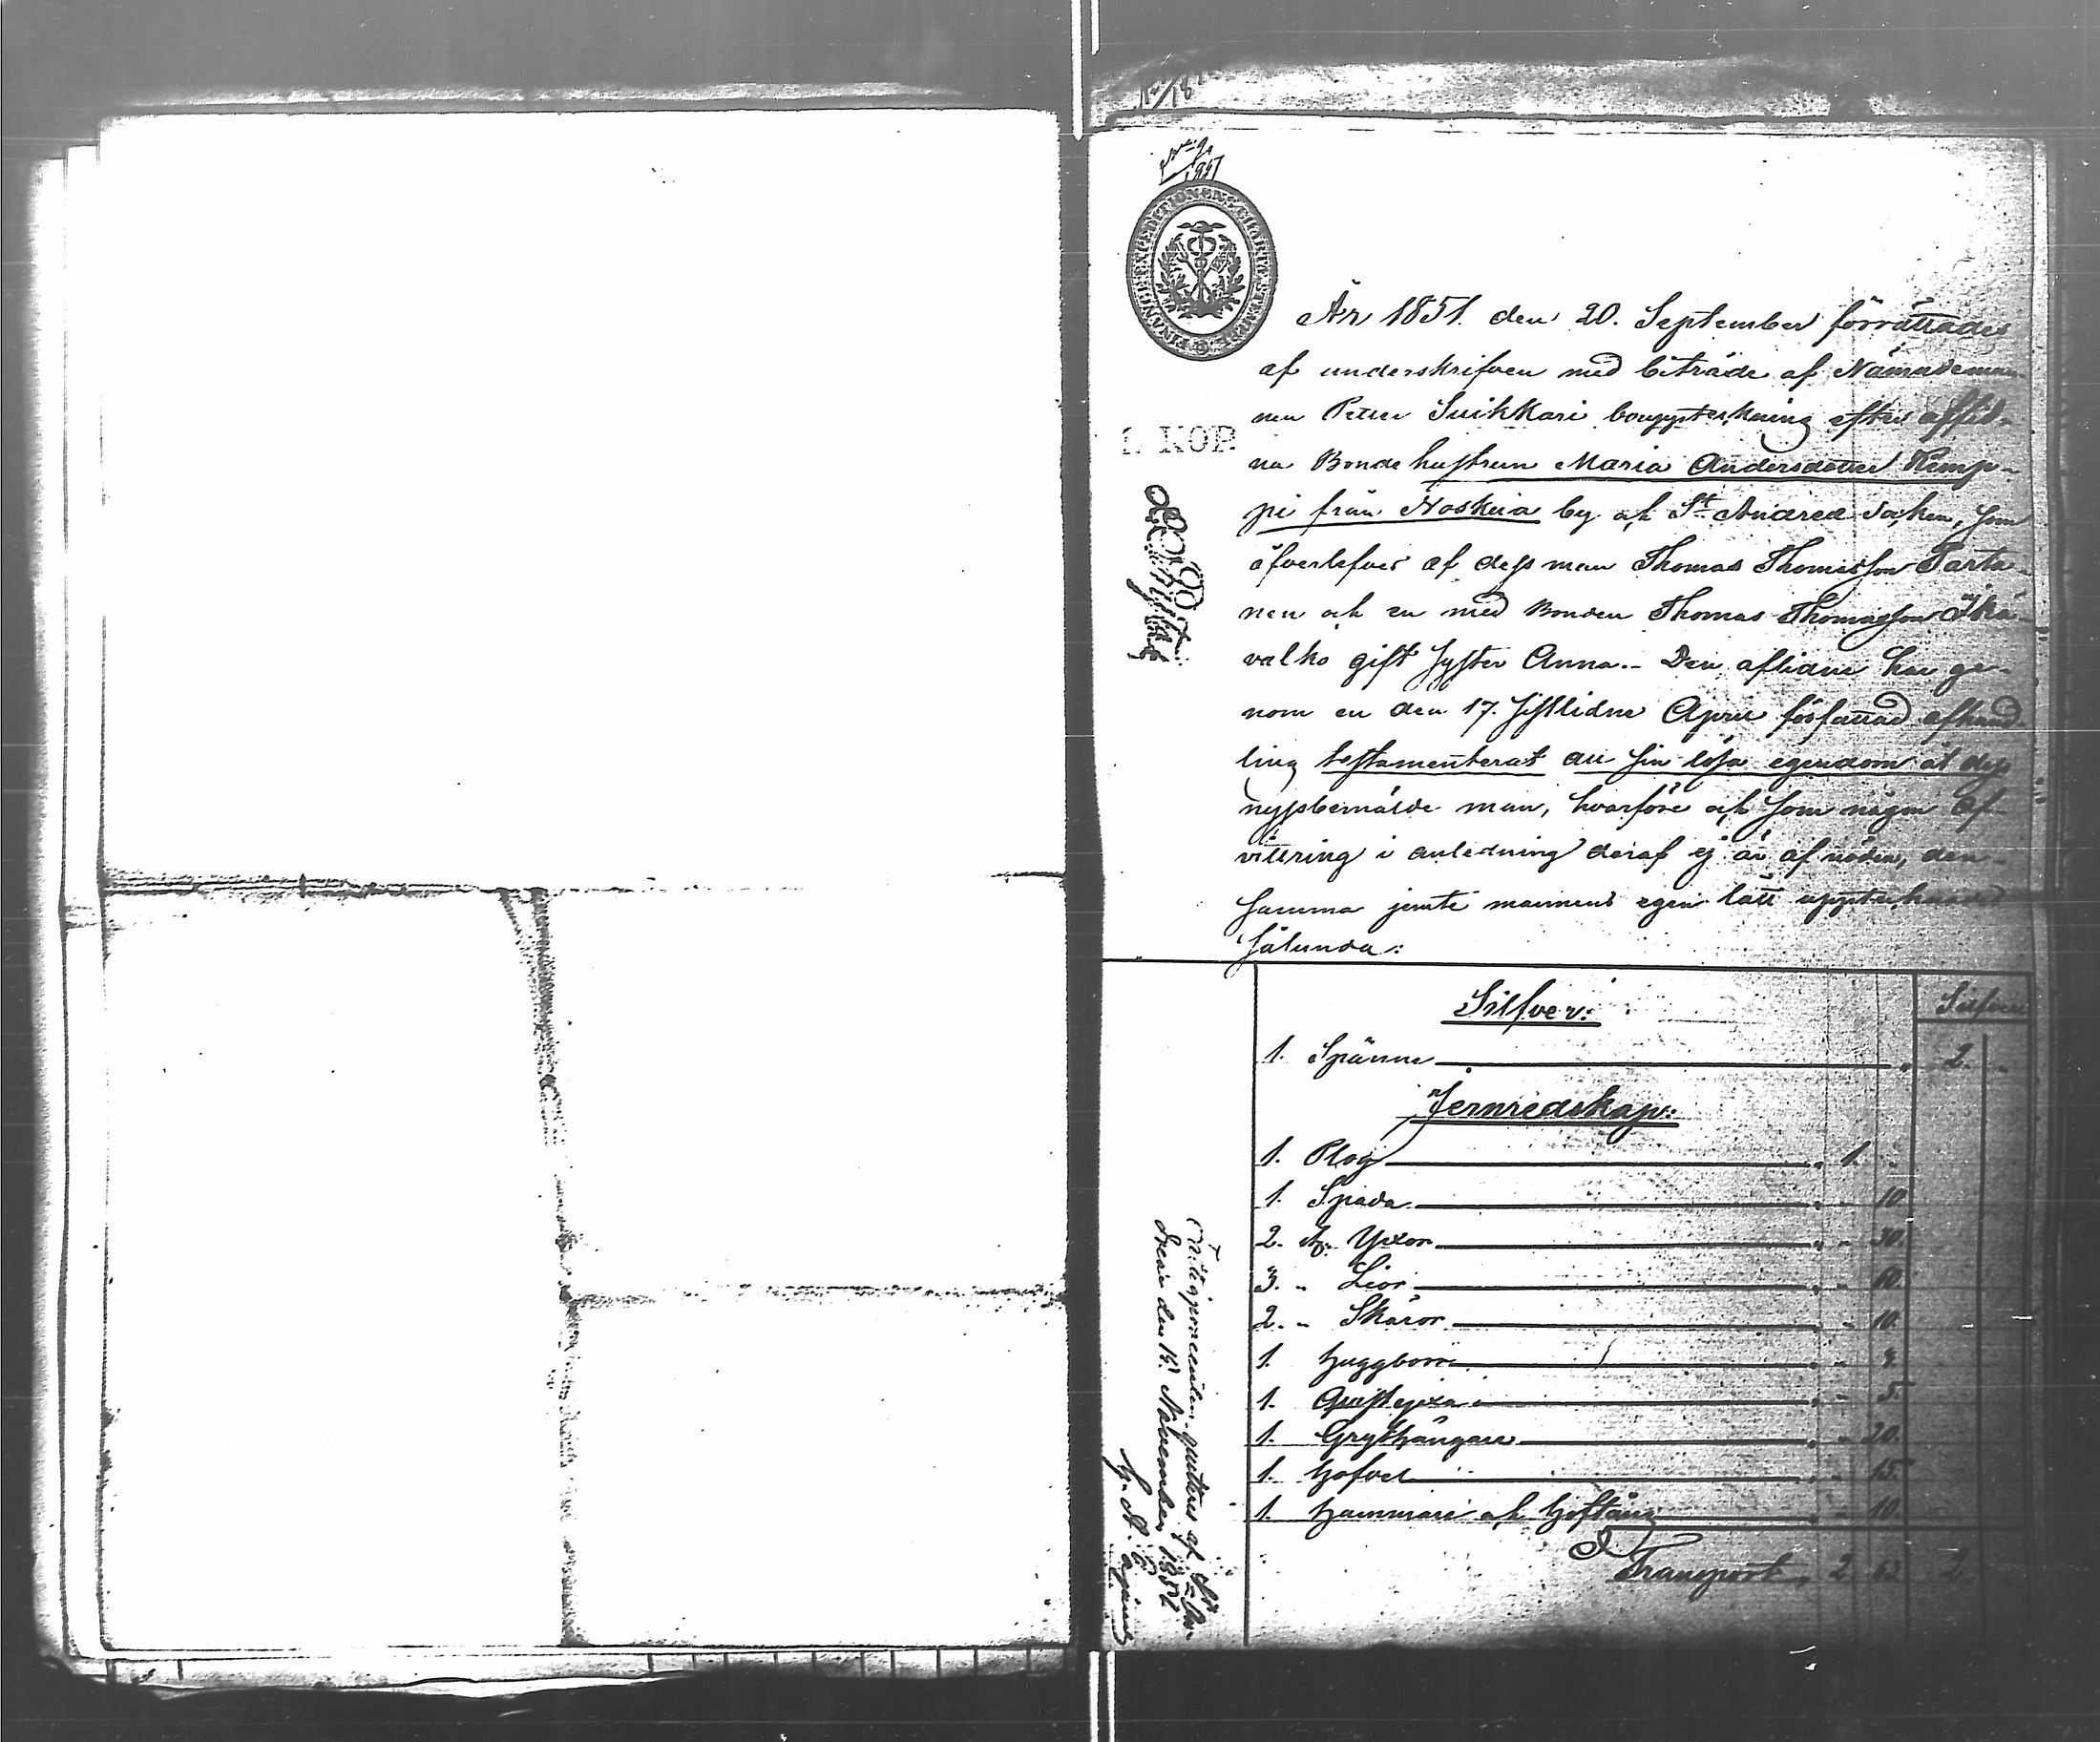 FINANCE EXPEDITIONENS CHARTÆ STEMPEL
År 1851. den 20. September förrättades
af underskrifven med biträde af Nämndeman
nen Petter Suikkari bouppteckning efter afled-
na Bondehustrun Maria Andersdotter Kemp-
pi från Noskua by och St. Andreæ Socken, som
öfverlefves af dess man Thomas Thomasson Tarta-
nen och en med Bonden Thomas Thomasson Ikä-
valko gift Syster Anna. – Den aflidne har ge-
nom en den 17. sistlidne April författad afhand-
ling testamenterat all sin lösa egendom åt dess
nyssbemälde man, hvarföre och som någon af-
vittring i anledning deraf ej är af nöden, den-
samma jemte mannens egen lått upptecknades
sålunda:
1. KOP.
Silfver:
Silfver
1. Spänne 2. -
Jernredskap:
1. Plog 1. -
1. Spada - 10.
2. st. Yxor - 30.
3. " Liar - 10.
2. " Skäror - 10.
1. Huggborr - 3
1. Qvistyxa - 5.
1. Grythängare - 20.
1. Hofvel - 15.
1. Hammare och Hoftång - 10.
Transport, 2. 13. 2
Fattigprocenten quitteras af St. An-
dreæ den 15. November 1852